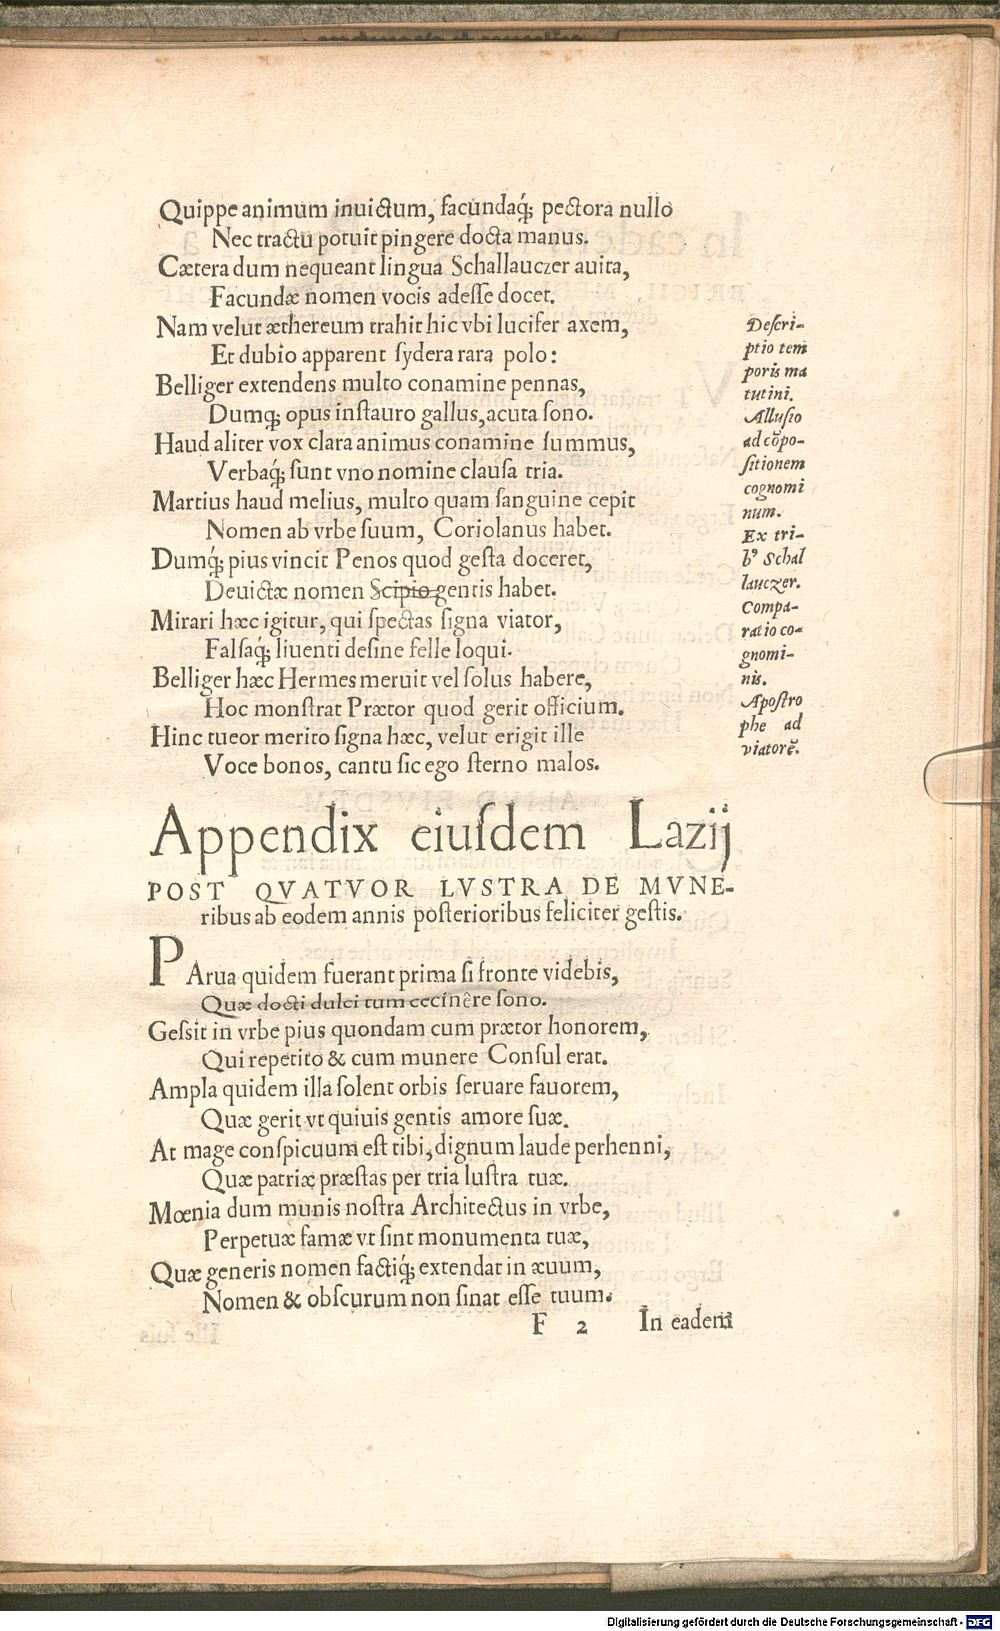 Quippe animum inuictum, facundaq́; pectora nullo
Nec tractu potuit pingere docta manus.
Cætera dum nequeant lingua Schallauczer auita,
Facundæ nomen vocis adesse docet.
Nam velut æthereum trahit hic vbi lucifer axem,
Et dubio apparent sydera rara polo:
Belliger extendens multo conamine pennas,
Dumq; opus instauro gallus, acuta sono.
Haud aliter vox clara animus conamine summus,
Verbaq́; sunt vno nomine clausa tria.
Martius haud melius, multo quam sanguine cepit
Nomen ab vrbe suum, Coriolanus habet.
Dumq́; pius vincit Penos quod gesta doceret,
Deuictæ nomen Scipio gentis habet.
Mirari hæc igitur, qui spectas signa viator,
Falsaq́; liuenti desine felle loqui.
Belliger hæc Hermes meruit vel solus habere,
Hoc monstrat Prætor quod gerit officium.
Hinc tueor merito signa hæc, velut erigit ille
Voce bonos, cantu sic ego sterno malos.
Descri-
ptio tem
poris ma
tutini.
Allusio
ad cōpo-
sitionem
cognomi
num.
Ex tri-
bꝰ Schal
lauczer.
Compa-
ratio co-
gnomi-
nis.
Apostro
phe ad
viatorē.
Appendix eiusdem Lazij
POST QVATVOR LVSTRA DE MVNE-
ribus ab eodem annis posterioribus feliciter gestis.
PArua quidem fuerant prima si fronte videbis,
Quæ docti dulci tum cecinêre sono.
Gessit in vrbe pius quondam cum prætor honorem,
Qui repetito & cum munere Consul erat.
Ampla quidem illa solent orbis seruare fauorem,
Quæ gerit vt quiuis gentis amore suæ.
At mage conspicuum est tibi, dignum laude perhenni,
Quæ patriæ præstas per tria lustra tuæ.
Mœnia dum munis nostra Architectus in vrbe,
Perpetuæ famæ vt sint monumenta tuæ,
Quæ generis nomen factiq́; extendat in æuum,
Nomen & obscurum non sinat esse tuum.
F 2 In eadem
Digitalisierung gefördert durch die Deutsche Forschungsgemeinschaft - DFG